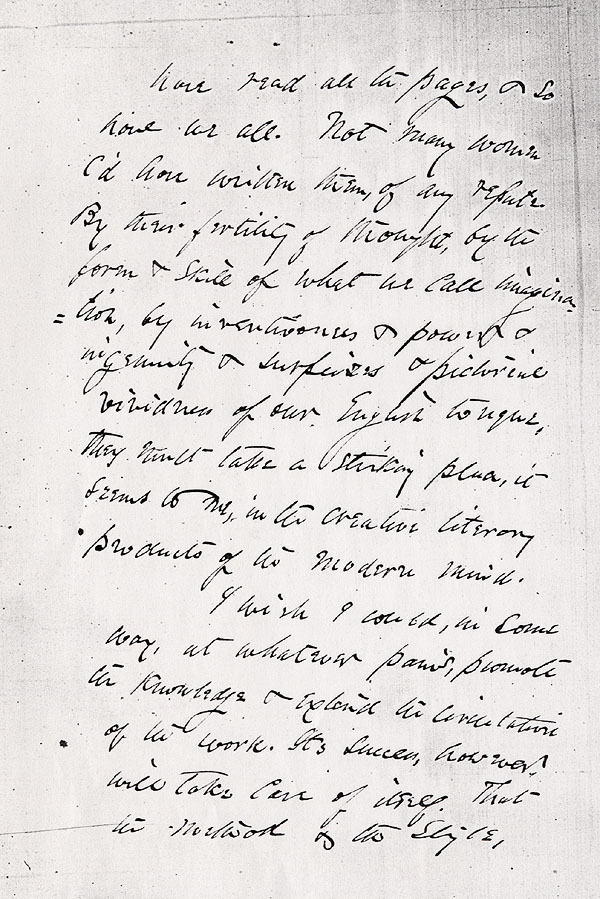 have read all the pages, & so
have we all. Not many women
c'd have written them, of any repute
By their fertility of thought, by the
form & skill of what we call imagina-
=tion, by inventiveness & power &
ingenuity & surprizes & pictorial
vividness of our English tongue,
they must take a striking place, it
seems to me, in the creative literary
products of the modern mind.
I wish I could, in some
way, at whatever pains, promote
the knowledge & extend the circulation
of the work. Its success, however,
will take care of itself. That
the method & the style,